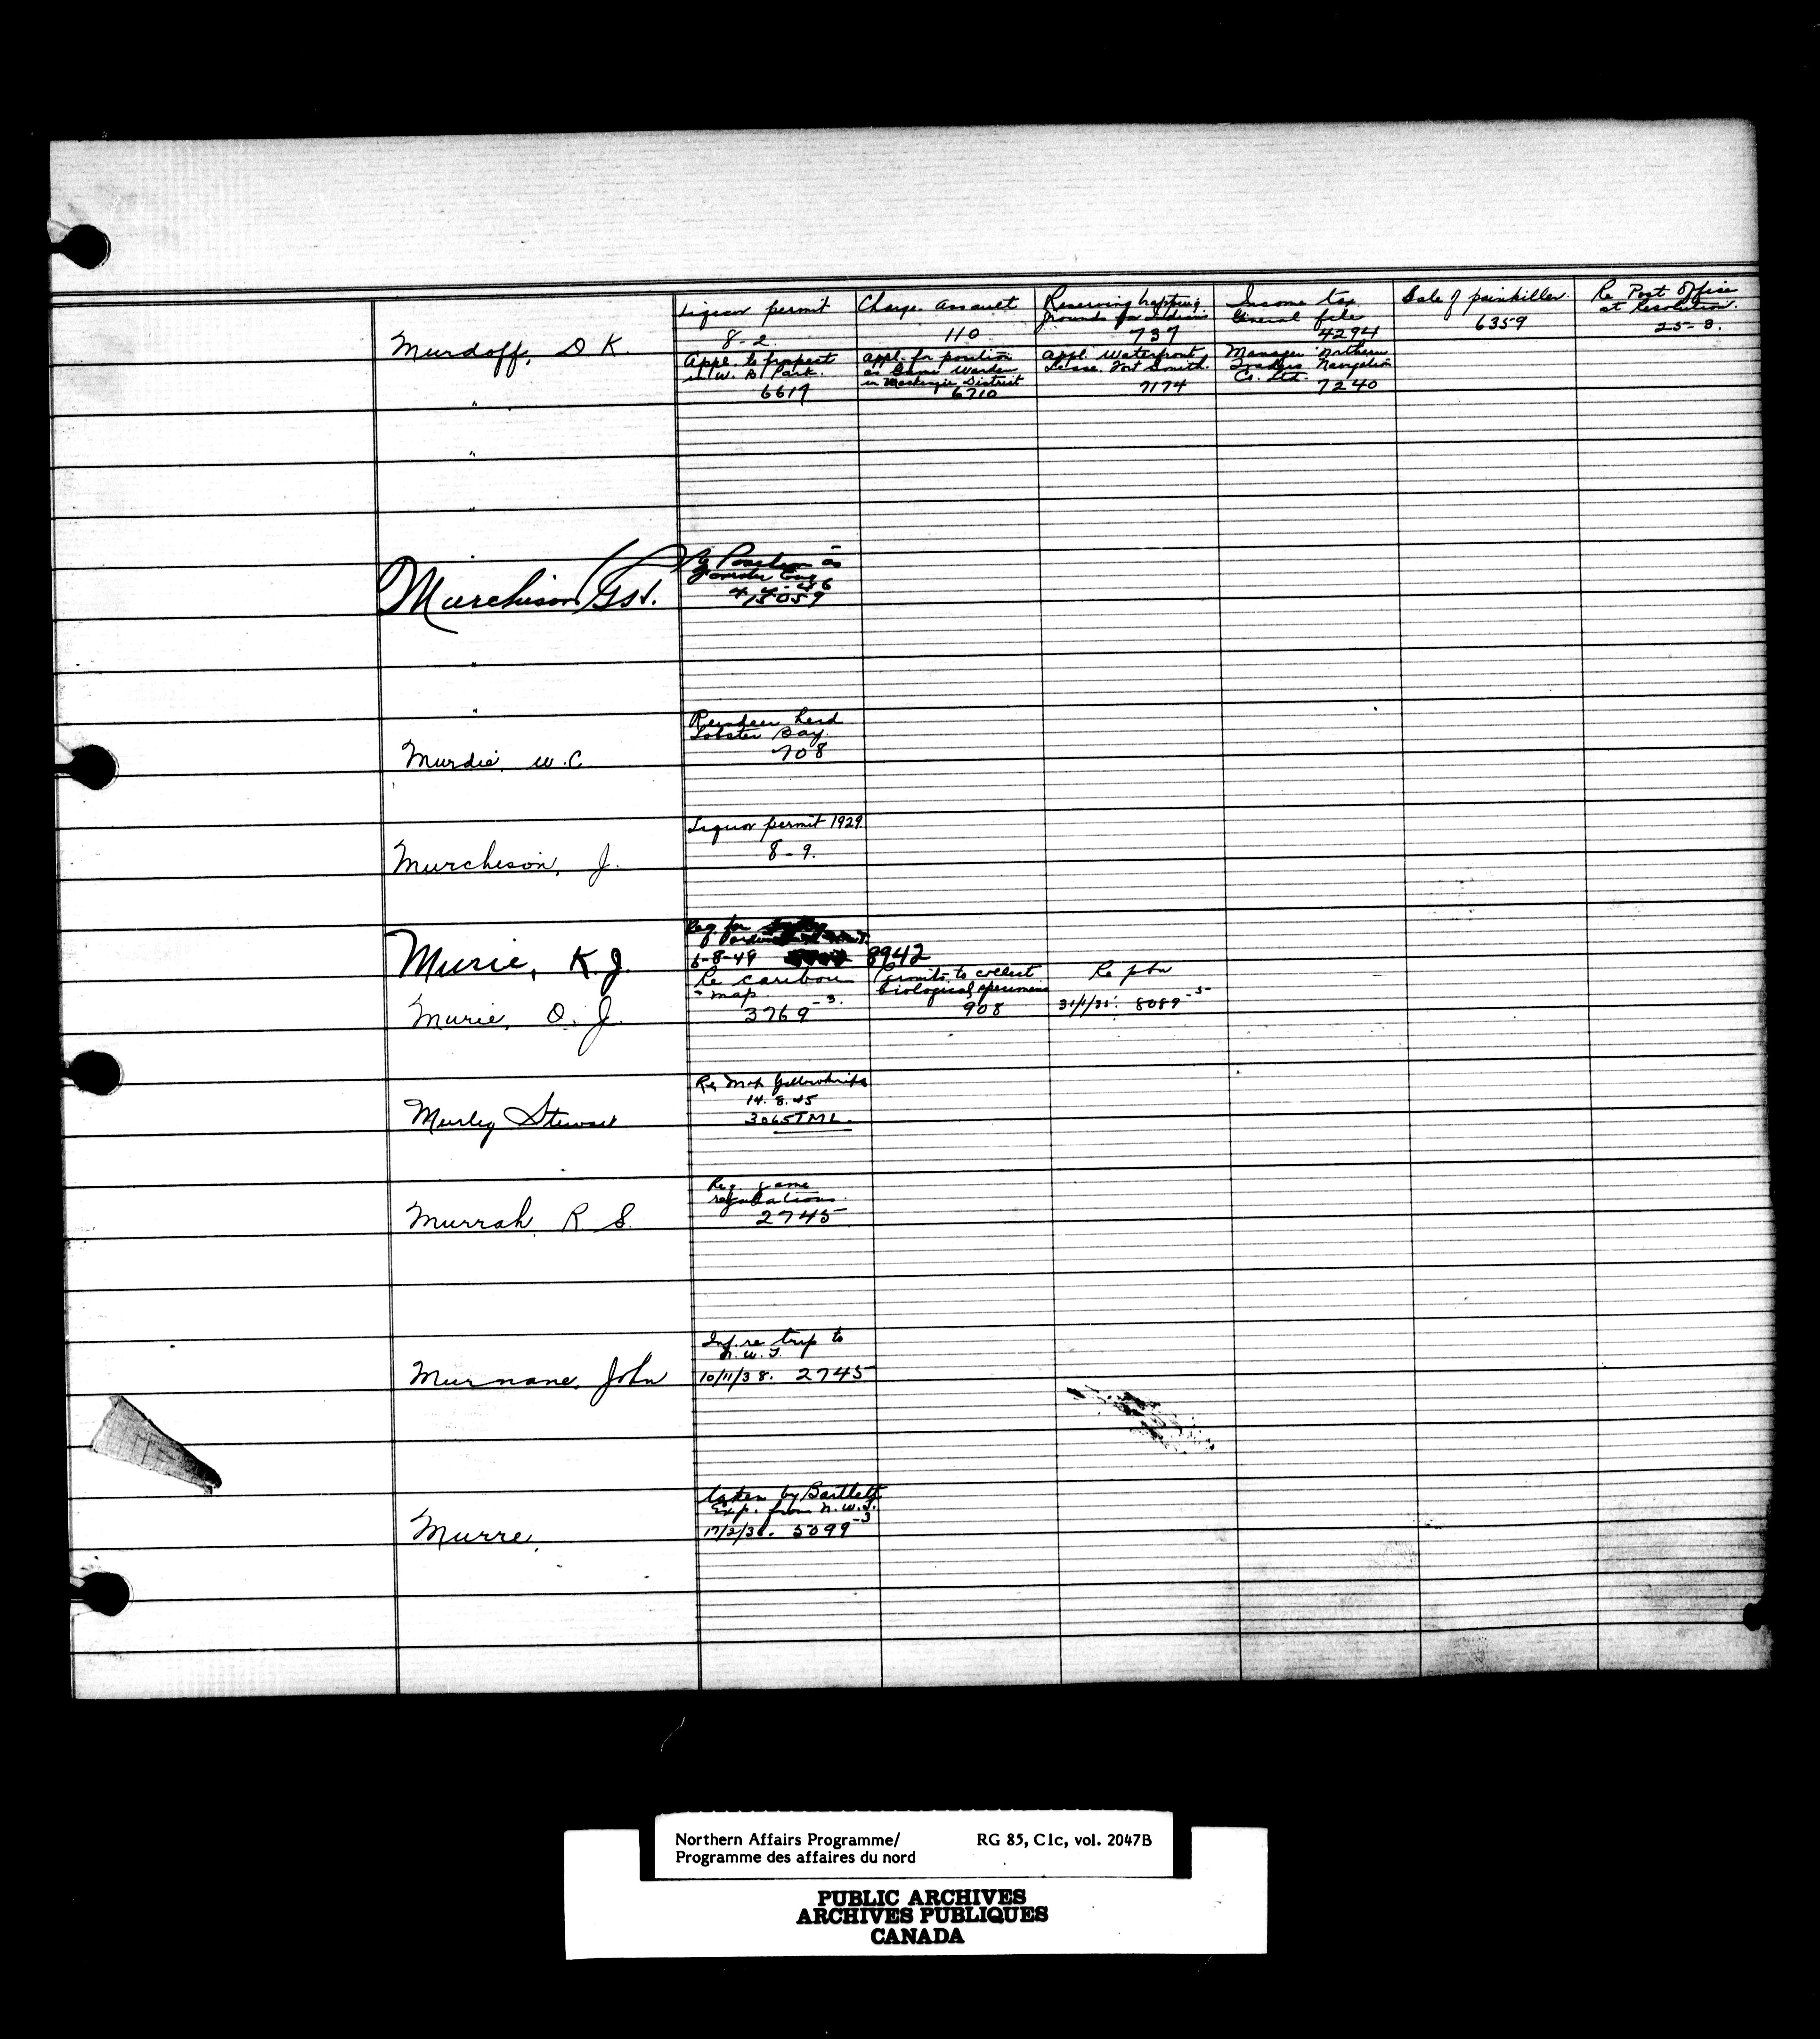 Liquor permit
8-2.
Charge. Assault
110
Reserving trapping
grounds for Indians
737
Income tax
General file
4294
Sale of painkiller.
6359
Re Post Office
at Resolution.
25-3.
Murdoff, D K.
Appl. to prospect
in W. B. Park.
6617
Appl. for position
as Game Warden
in Mackenzie District
6710
Appl. Waterfront
Lease. Fort Smith.
7174
Manager Northern
Traders Navigation
Co. Ltd.
7240
"
"
"
Murchison
Position as
15059
"
"
Reindeer herd
Lobster Bay.
708
Murdie, W.C.
Liquor permit 1929.
8-9.
Murchison, J.
Req. for
Murie, K.J.
6-8-49
8942
Re caribou
map.
3769-3.
Permits to collect
biological specimens
908
Re
8089-5
Murie, O. J.
Re Map Yellowknife
14.8.45
3065TML.
Murley Stewart
Req. game
regulations.
2745
Murrah, R S.
Inf. re trip to
N.W.T.
10/11/38. 2745
Murnane, John
taken by Bartlett
Exp. from N.W.T.
5099-3
Murre.
Northern Affairs Programme/
Programme des affaires du nord
RG 85, C1c, vol. 2047B
PUBLIC ARCHIVES
ARCHIVES PUBLIQUES
CANADA